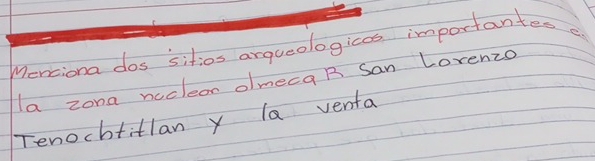 Menciona dos sitios arqueologicos importantes e
la zona nuclear olmeca R San Lorenzo
Tenochtitlan y la venta